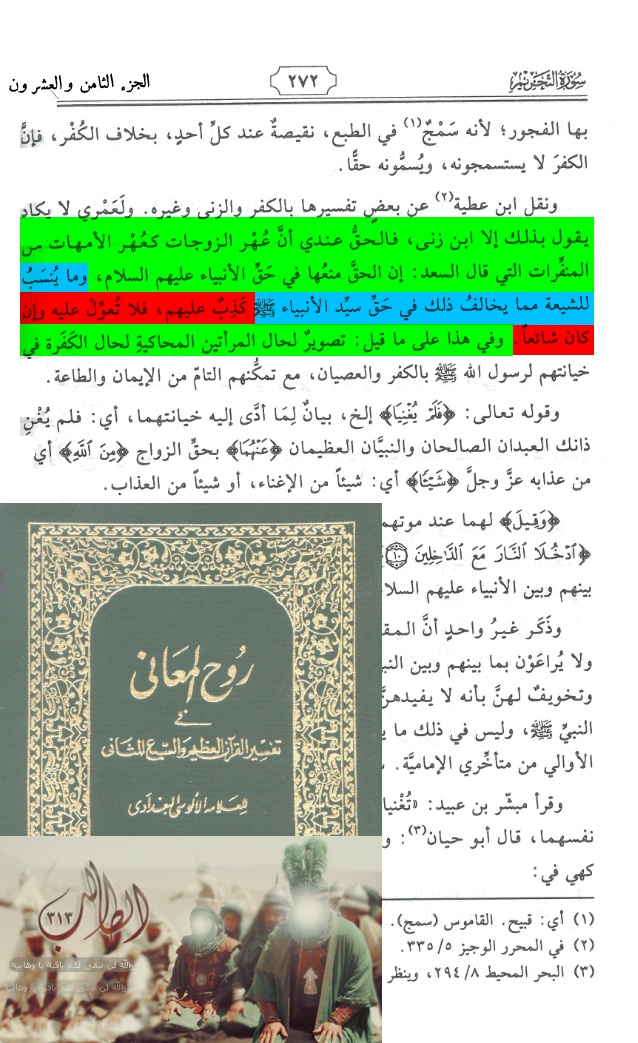 سُورَةُ التَّحْرِيمِ
٢٧٢
الجزء الثامن والعشرون
بها الفجور؛ لأنه سَمْجٌ(١) في الطبع، نقيصةٌ عند كلِّ أحدٍ، بخلاف الكُفْر، فإنَّ
الكفرَ لا يستسمجونه، ويُسمُّونه حقًّا.
ونقل ابن عطية(٢) عن بعضٍ تفسيرها بالكفر والزنى وغيره. ولَعَمْري لا يكاد
يقول بذلك إلا ابن زنى، فالحقُّ عندي أنَّ عُهْر الزوجات كعُهْر الأمهات من
المنفِّرات التي قال السعد: إن الحقَّ منعُها في حَقِّ الأنبياء عليهم السلام، وما يُنسَبُ
للشيعة مما يخالفُ ذلك في حَقِّ سيِّد الأنبياء ﷺ كَذِبٌ عليهم، فلا تُعوِّلْ عليه وإن
كان شائعاً. وفي هذا على ما قيل: تصويرٌ لحال المرأتين المحاكيةِ لحال الكَفَرة في
خيانتهم لرسول الله ﷺ بالكفر والعصيان، مع تمكُّنهم التامّ من الإيمان والطاعة.
وقوله تعالى: ﴿فَلَمْ يُغْنِيَا﴾ إلخ، بيانٌ لِمَا أدَّى إليه خيانتهما، أي: فلم يُغْنِ
ذانك العبدان الصالحان والنبيَّان العظيمان ﴿عَنْهُمَا﴾ بحقِّ الزواج ﴿مِنَ اللَّهِ﴾ أي
من عذابه عزَّ وجلَّ ﴿شَيْئًا﴾ أي: شيئاً من الإغناء، أو شيئاً من العذاب.
﴿وَقِيلَ﴾ لهما عند موتهم
﴿ادْخُلَا النَّارَ مَعَ الدَّاخِلِينَ ١٠﴾
بينهم وبين الأنبياء عليهم السلا
وذَكَر غيرُ واحدٍ أنَّ المق
ولا يُراعَوْن بما بينهم وبين النب
وتخويفٌ لهنَّ بأنه لا يفيدهنَّ
النبيِّ ﷺ، وليس في ذلك ما ي
الأوالي من متأخِّري الإماميَّة.
وقرأ مبشّر بن عبيد: «تُغْنيا
نفسهما، قال أبو حيان(٣): و
كهي في:
(١) أي: قبيح. القاموس (سمج).
(٢) في المحرر الوجيز ٥/ ٣٣٥.
(٣) البحر المحيط ٨/ ٢٩٤، وينظر
روح المعاني
في
تفسير القرآن العظيم والسبع المثاني
للعلامة الألوسي البغدادي
الطالب
٣١٣